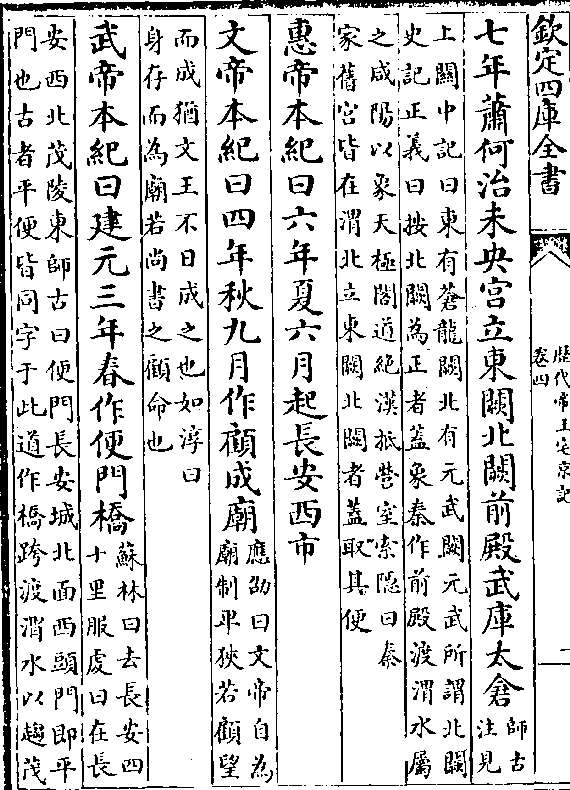 欽定四庫全書
歴代帝王宅京記
卷四
二
七年蕭何治未央宫立東闕北闕前殿武庫太倉師古
注見
上關中記曰東有蒼龍闕北有元武闕元武所謂北闕
史記正義曰按北闕為正者蓋象秦作前殿渡渭水屬
之咸陽以象天極閣道絶漢抵營室索隠曰秦
家舊宫皆在渭北立東闕北闕者蓋取其便
惠帝本紀曰六年夏六月起長安西市
文帝本紀曰四年秋九月作顧成廟應劭曰文帝自為
廟制卑狹若顧望
而成猶文王不日成之也如淳曰
身存而為廟若尚書之顧命也
武帝本紀曰建元三年春作便門橋蘇林曰去長安四
十里服虔曰在長
安西北茂陵東師古曰便門長安城北面西頭門即平
門也古者平便皆同字于此道作橋跨渡渭水以趨茂